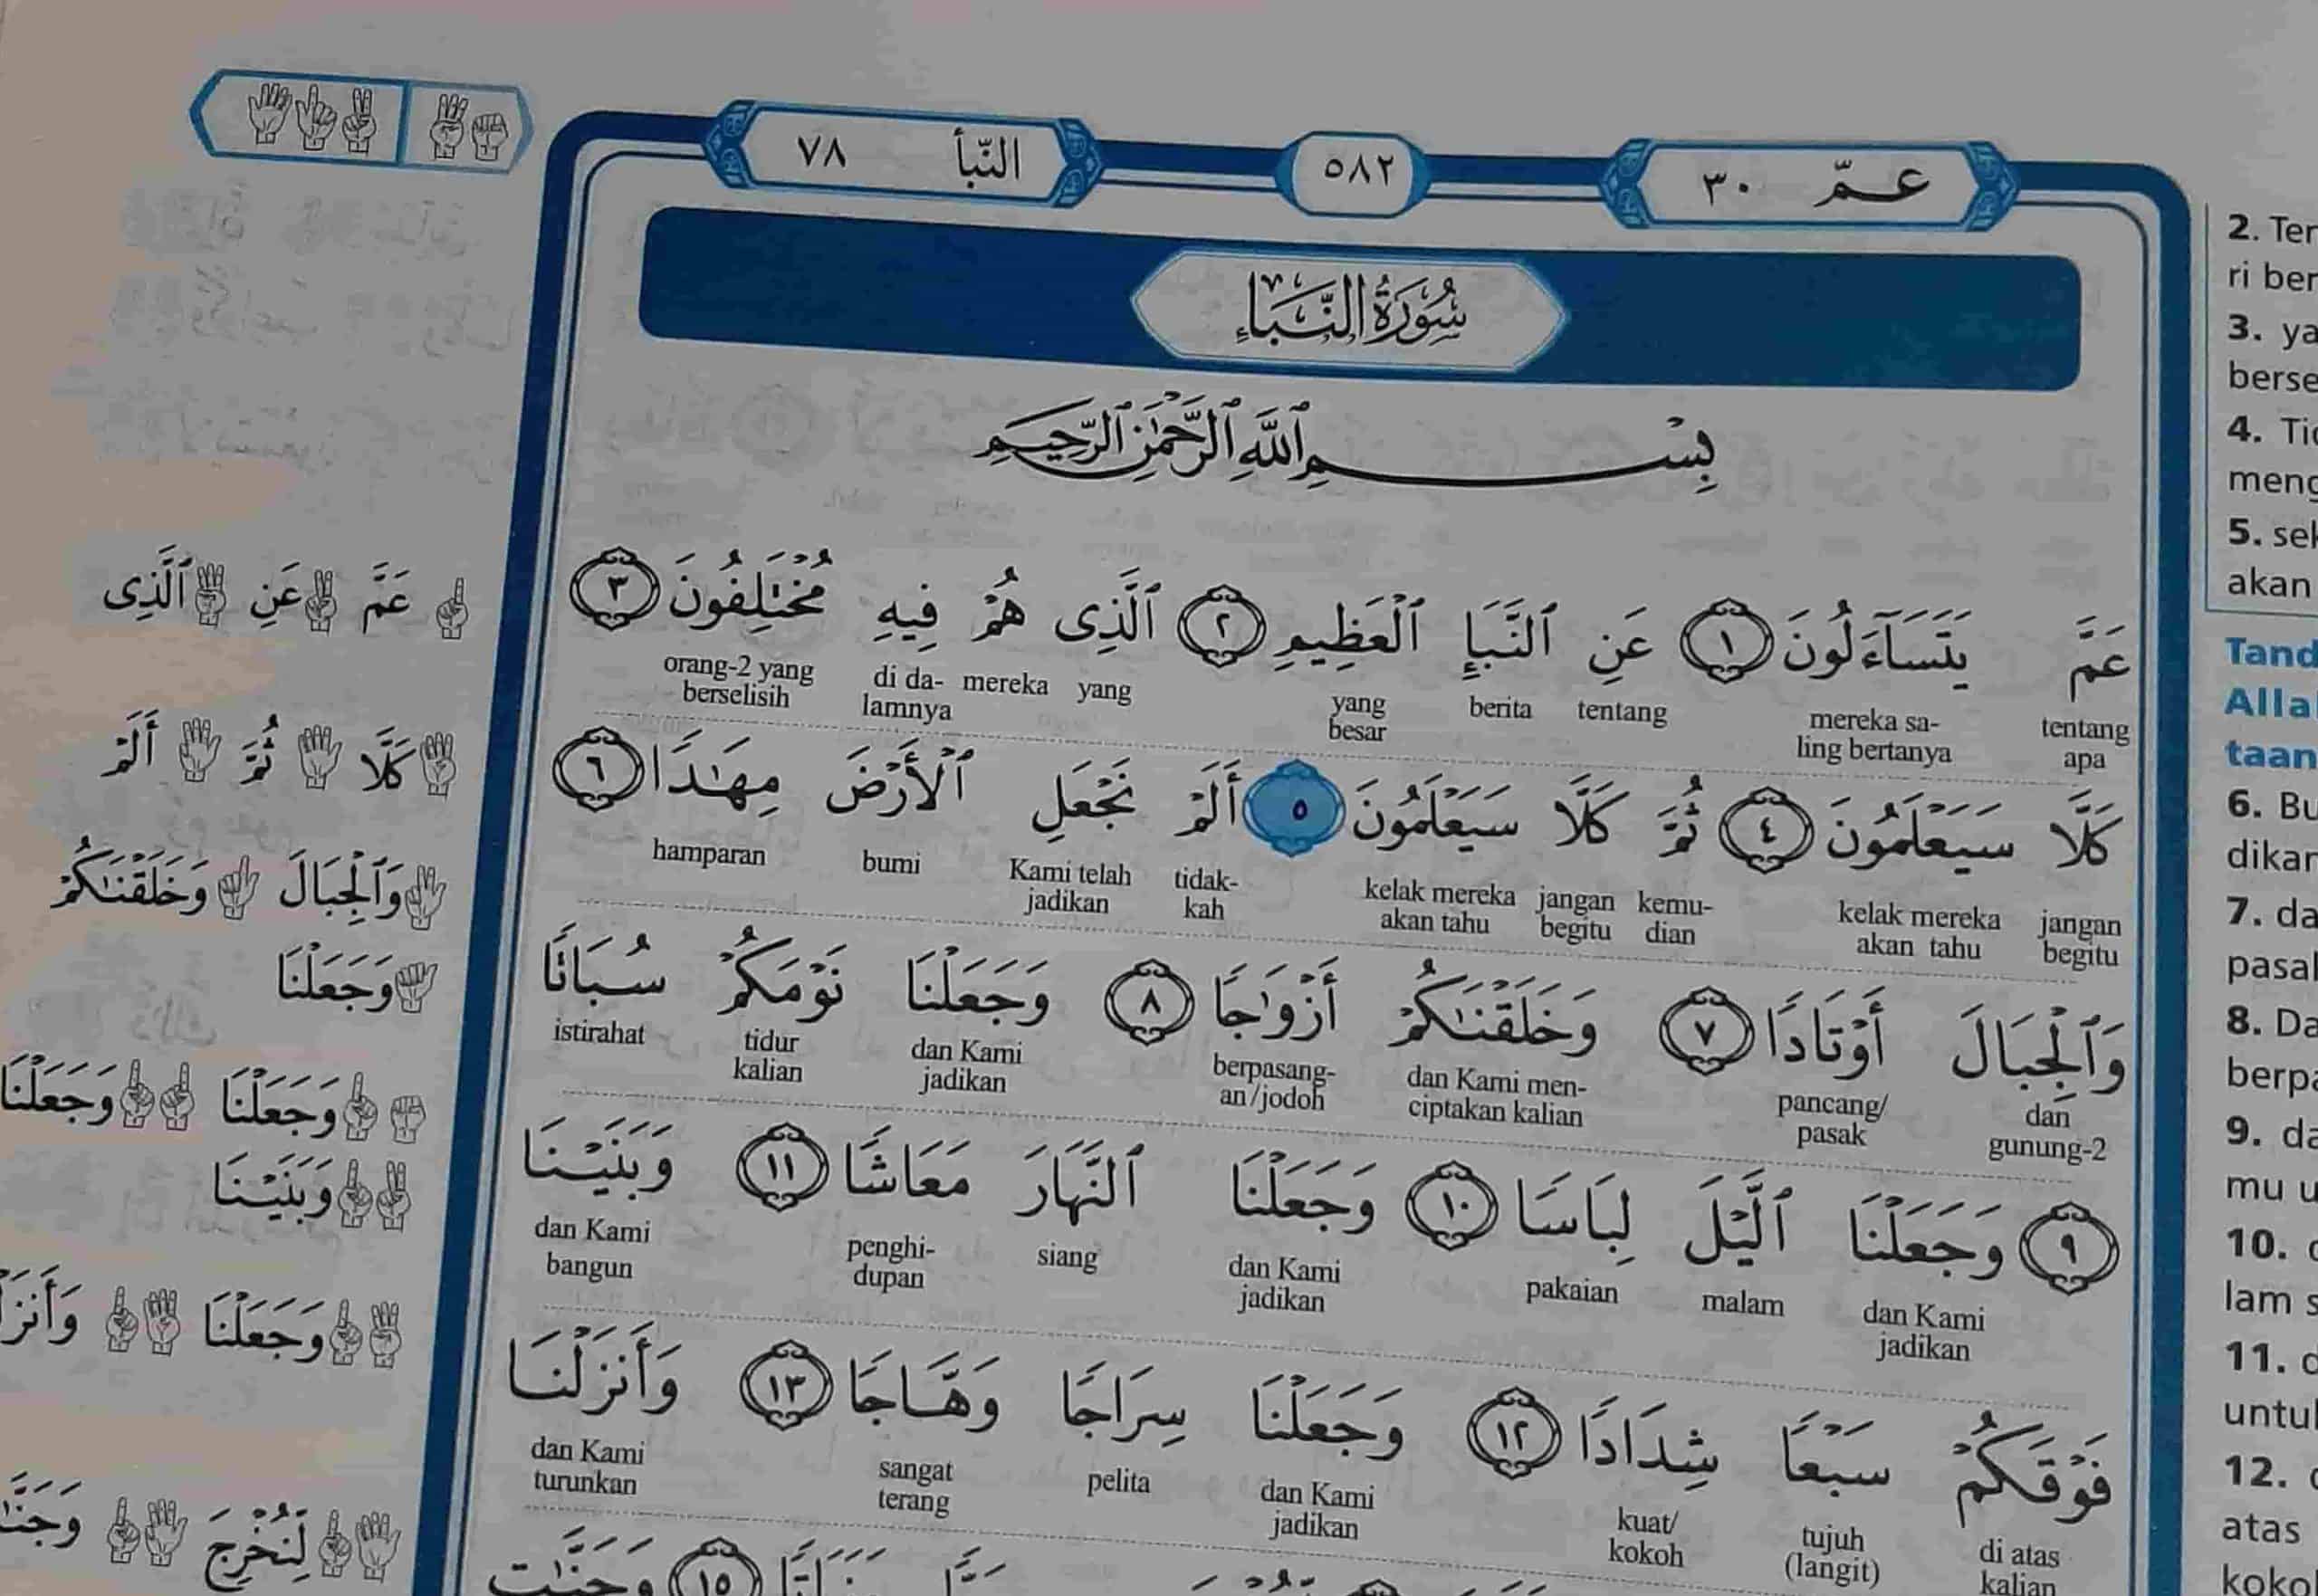 عمّ ٣٠
٥٨٢
النّبأ ٧٨
سُورَةُ النَّبَاءِ
بِسْمِ ٱللَّهِ ٱلرَّحْمَٰنِ ٱلرَّحِيمِ
عَمَّ يَتَسَآءَلُونَ ١ عَنِ ٱلنَّبَإِ ٱلْعَظِيمِ ٢ ٱلَّذِى هُمْ فِيهِ مُخْتَلِفُونَ ٣
tentang apa mereka sa-ling bertanya tentang berita yang besar yang mereka di da-lamnya orang-2 yang berselisih
كَلَّا سَيَعْلَمُونَ ٤ ثُمَّ كَلَّا سَيَعْلَمُونَ ٥ أَلَمْ نَجْعَلِ ٱلْأَرْضَ مِهَٰدًا ٦
jangan begitu kelak mereka akan tahu kemu-dian jangan begitu kelak mereka akan tahu tidak-kah Kami telah jadikan bumi hamparan
وَٱلْجِبَالَ أَوْتَادًا ٧ وَخَلَقْنَٰكُمْ أَزْوَٰجًا ٨ وَجَعَلْنَا نَوْمَكُمْ سُبَاتًا
dan gunung-2 pancang/ pasak dan Kami men-ciptakan kalian berpasang-an/jodoh dan Kami jadikan tidur kalian istirahat
٩ وَجَعَلْنَا ٱلَّيْلَ لِبَاسًا ١٠ وَجَعَلْنَا ٱلنَّهَارَ مَعَاشًا ١١ وَبَنَيْنَا
dan Kami jadikan malam pakaian dan Kami jadikan siang penghi-dupan dan Kami bangun
فَوْقَكُمْ سَبْعًا شِدَادًا ١٢ وَجَعَلْنَا سِرَاجًا وَهَّاجًا ١٣ وَأَنزَلْنَا
di atas kalian tujuh (langit) kuat/ kokoh dan Kami jadikan pelita sangat terang dan Kami turunkan
١٥ وَجَنَّٰتٍ
عَمَّ عَنِ ٱلَّذِى
كَلَّا ثُمَّ أَلَمْ
وَٱلْجِبَالَ وَخَلَقْنَٰكُمْ
وَجَعَلْنَا
وَجَعَلْنَا وَجَعَلْنَا
وَبَنَيْنَا
وَجَعَلْنَا
لِّنُخْرِجَ
2.
ri
3.
4.
5.
akan
Tand
Alla
taan
6. Bu
dikar
7. da
pasal
8. Da
9. da
mu
10.
lam
11.
12.
atas